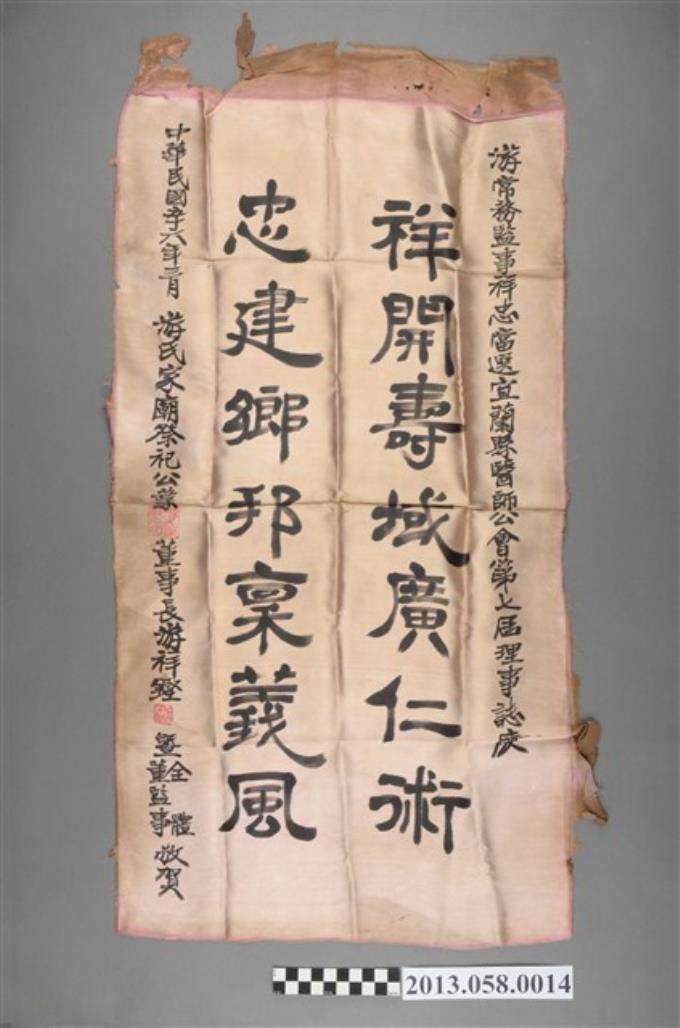 游常務監事祥忠當選宜蘭縣醫師公會第七屆理事誌慶
祥開壽域廣仁術
忠建鄉邦稟義風
中華民國六年三月 游氏家廟祭祀公業 董事長游祥鏗 暨全體董監事 敬賀
2013.058.0014